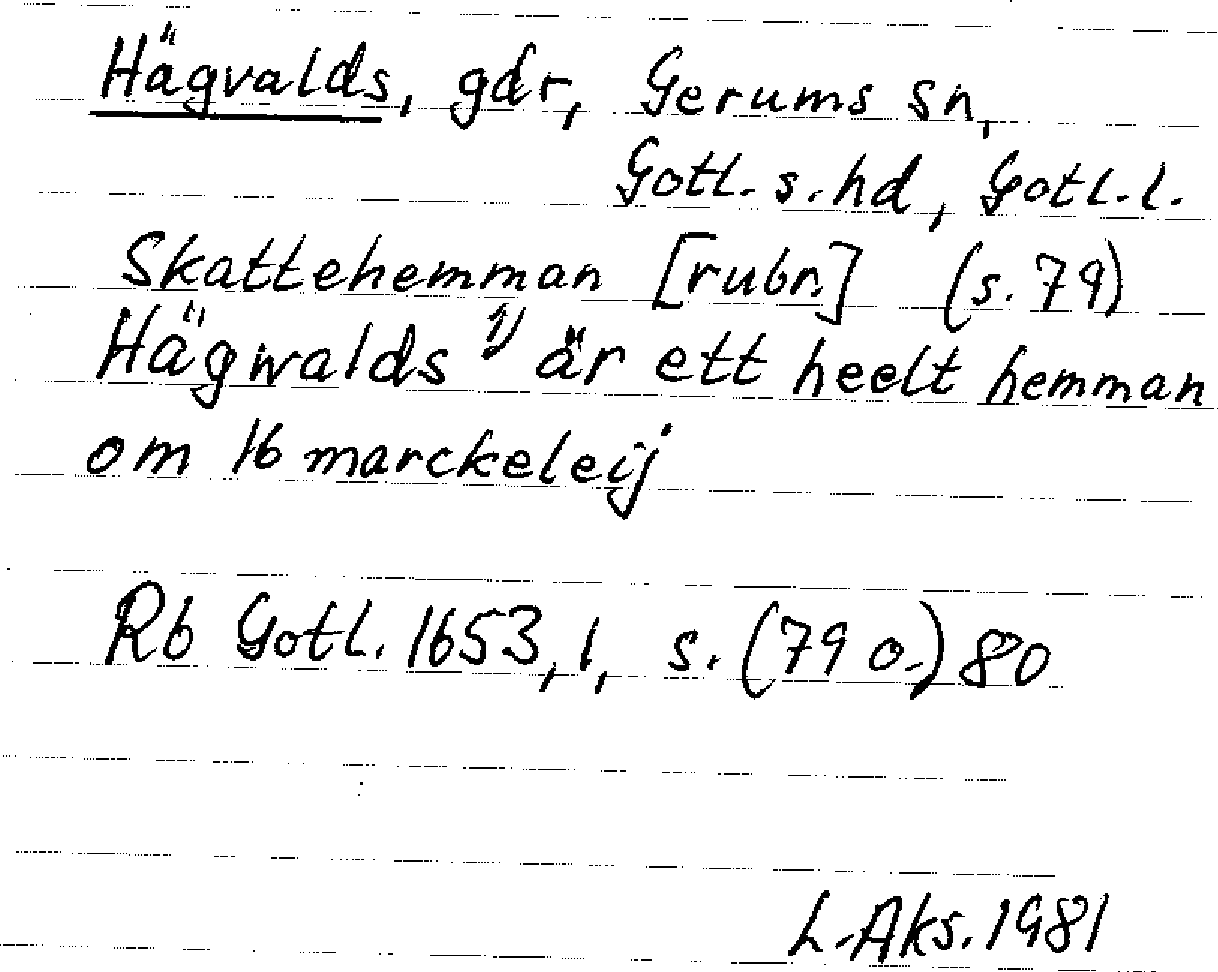 Hägvalds, gdr, Gerums sn,
Gotl. s. hd, Gotl. l.
Skattehemman [rubr.] (s. 79)
Hägwalds 1) är ett heelt hemman
om 16 marckeleij
Rb Gotl. 1653,1, s. (79 o.) 80
L. Aks. 1981